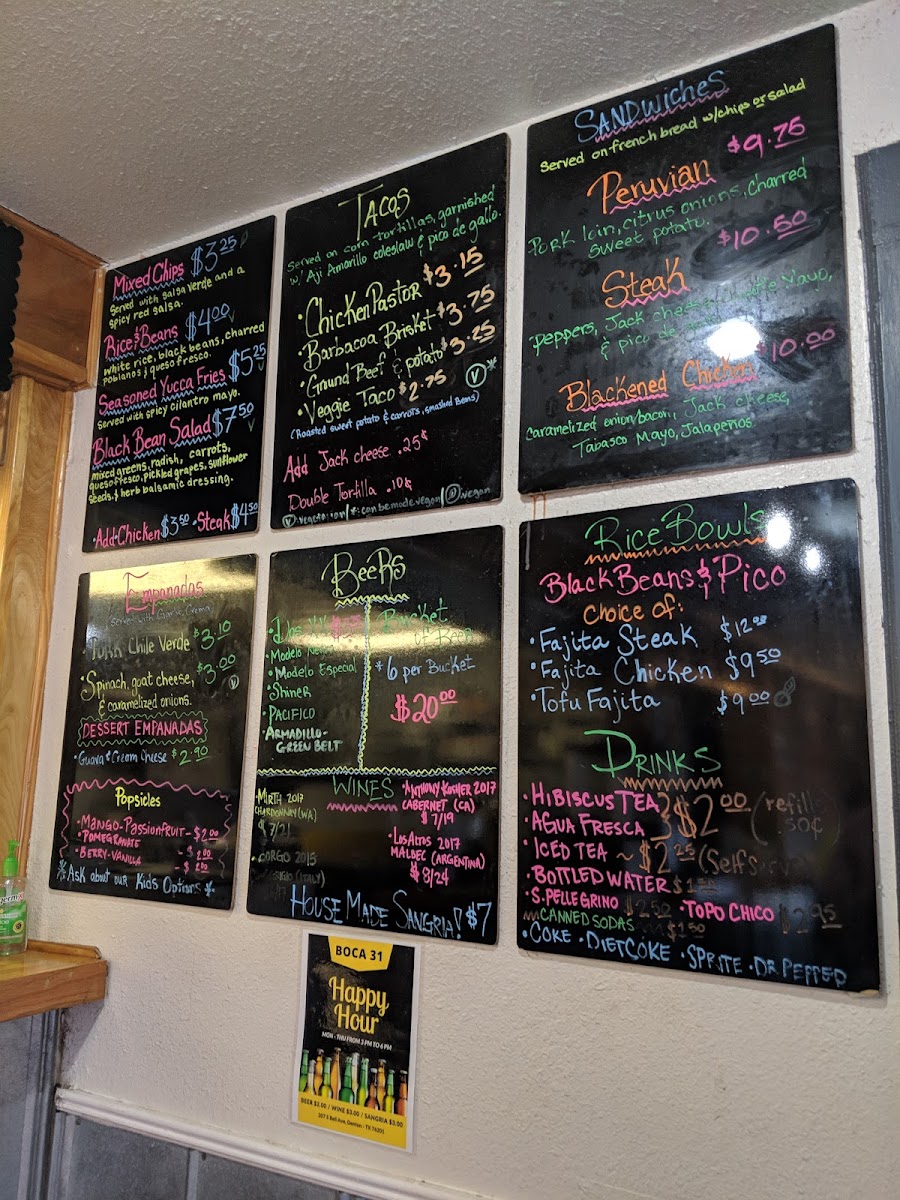 Mixed Chips $3.25
Served with salsa verde and a
spicy red salsa.
Rice & Beans $4.00
white rice, black beans, charred
poblanos & queso fresco.
Seasoned Yucca Fries $5.25
Served with spicy cilantro mayo.
Black Bean Salad $7.50
mixed greens, radish, carrots,
queso fresco, pickled grapes, sunflower
seeds, & herb balsamic dressing.
•Add•Chicken $3.50 •Steak $4.50
Tacos
Served on corn tortillas, garnished
w/ Aji Amarillo coleslaw & pico de gallo.
•Chicken Pastor $3.15
•Barbacoa Brisket $3.75
•Ground Beef & potato $3.25
•Veggie Taco $2.75 V*
(Roasted sweet potato & carrots, smashed beans)
Add Jack cheese .25¢
Double Tortilla .10¢
can be made vegan
vegan
SANDwicheS
Served on french bread w/chips or salad
Peruvian $9.75
Pork loin, citrus onions, charred
sweet potato.
Steak $10.50
Peppers, Jack cheese, Mayo,
& pico de
Blackened Chicken $10.00
Caramelized onion/bacon, Jack cheese,
Tabasco Mayo, Jalapeños
Empanadas
Served with Garlic Crema
•Pork Chile Verde $3.10
•Spinach, goat cheese, $3.00
& caramelized onions. V
DESSERT EMPANADAS
•Guava & Cream Cheese $2.90
Popsicles
•MANGO-PASSIONFRUIT - $2.00
•POMEGRANATE - $2.00
•BERRY-VANILLA - $2.00
*Ask about our Kids Options*
BeeRs
•Modelo
•Modelo Especial
•Shiner
•PACIFICO
•ARMADILLO-
GREEN BELT
Bucket
of Beer
*6 per Bucket
$20.00
WINES
•MIRTH 2017
CHARDONNEY (WA)
$7/21
2015
(ITALY)
•ANTHONY KOSHER 2017
CABERNET (CA)
$7/19
•Los Altos 2017
MALBEC (ARGENTINA)
$8/24
HOUSE MADE SANGRIA! $7
Rice Bowls
Black Beans & Pico
Choice of:
•Fajita Steak $12.00
•Fajita Chicken $9.50
•Tofu Fajita $9.00
DRINKS
•HIBISCUS TEA
•AGUA FRESCA } $2.00 (refill 50¢
•ICED TEA ~ $2.25 (Self
•BOTTLED WATER
•S. PELLEGRINO $2.50 •TOPO CHICO $2.95
CANNED SODAS $1.50
•COKE •DIET COKE •SPRITE •DR. PEPPER
BOCA 31
Happy
Hour
MON - THU FROM 3 PM TO 6 PM
BEER $2.00 / WINE $3.00 / SANGRIA $3.00
207 S Bell Ave, Denton - TX 76201